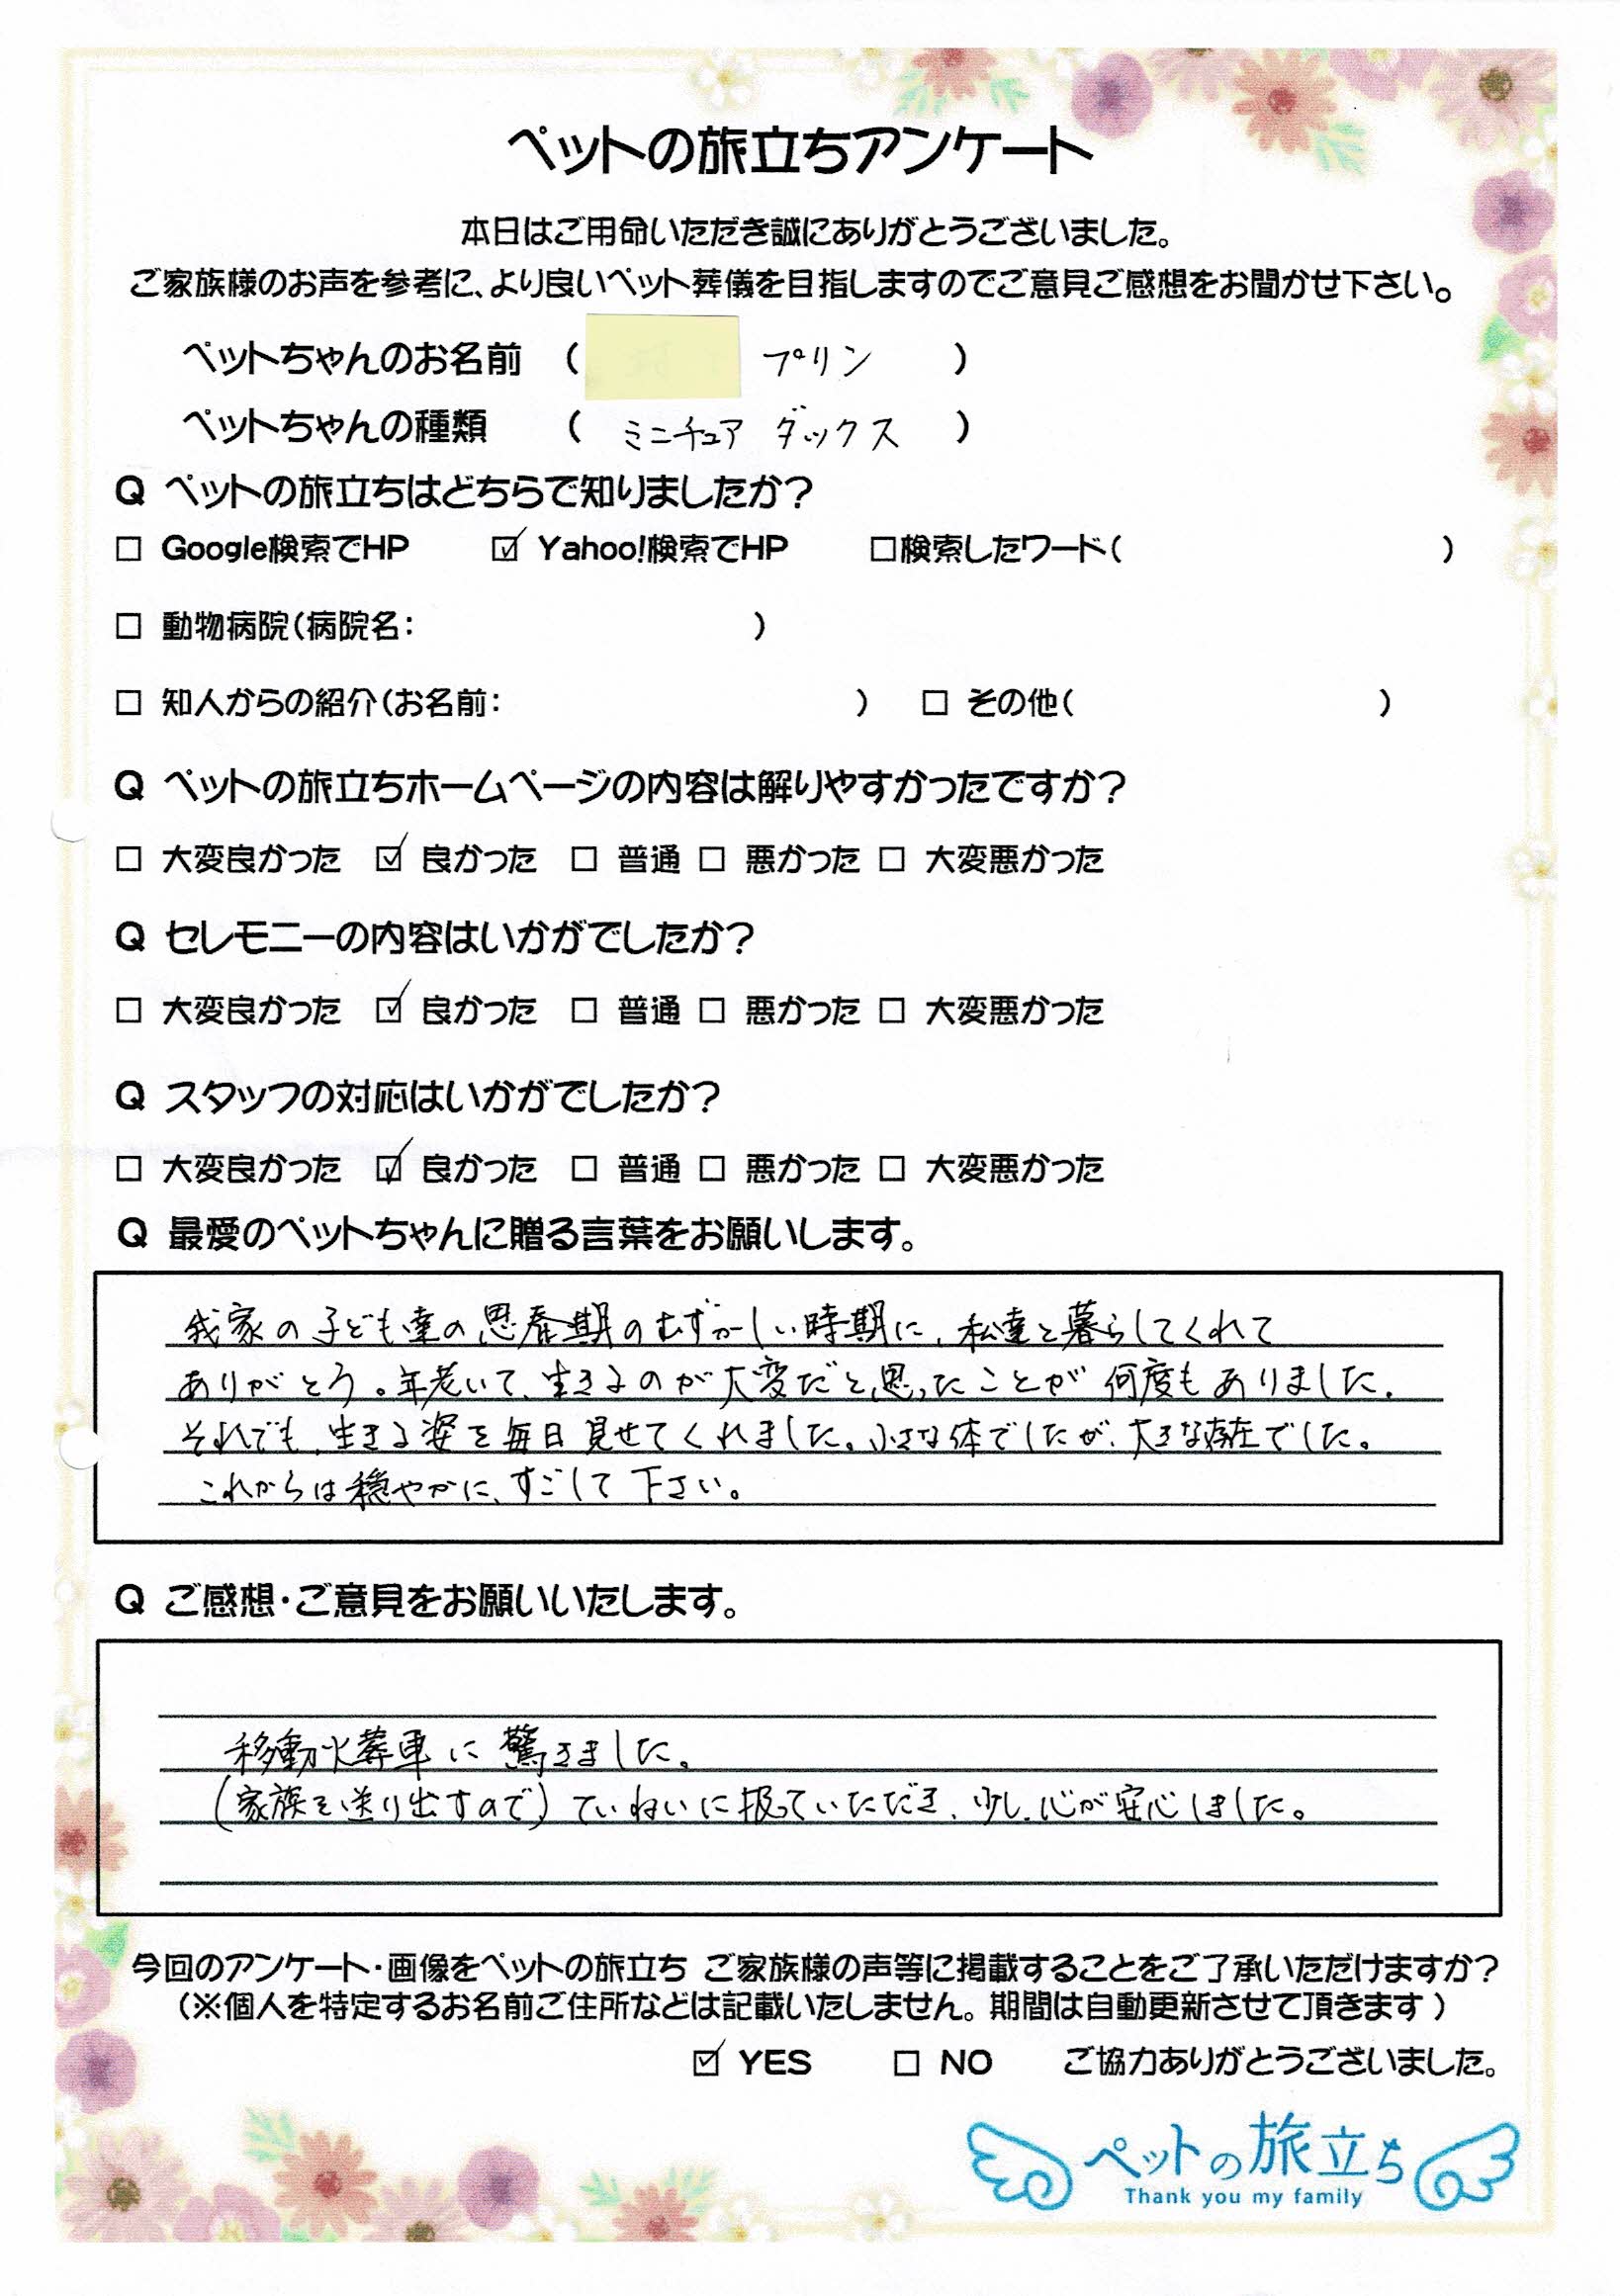 ペットの旅立ちアンケート
本日はご用命いただき誠にありがとうございました。
ご家族様のお声を参考に、より良いペット葬儀を目指しますのでご意見ご感想をお聞かせ下さい。
ペットちゃんのお名前 ( プリン )
ペットちゃんの種類 ( ミニチュア ダックス )
Q ペットの旅立ちはどちらで知りましたか?
□ Google検索でHP ☑ Yahoo!検索でHP □検索したワード( )
□ 動物病院(病院名: )
□ 知人からの紹介(お名前: ) □ その他( )
Q ペットの旅立ちホームページの内容は解りやすかったですか?
□ 大変良かった ☑ 良かった □ 普通 □ 悪かった □ 大変悪かった
Q セレモニーの内容はいかがでしたか?
□ 大変良かった ☑ 良かった □ 普通 □ 悪かった □ 大変悪かった
Q スタッフの対応はいかがでしたか?
□ 大変良かった ☑ 良かった □ 普通 □ 悪かった □ 大変悪かった
Q 最愛のペットちゃんに贈る言葉をお願いします。
我家の子ども達の思春期のむずかしい時期に、私達と暮らしてくれて
ありがとう。年老いて、生きるのが大変だと思ったことが何度もありました。
それでも、生きる姿を毎日見せてくれました。小さな体でしたが、大きな存在でした。
これからは穏やかに、すごして下さい。
Q ご感想・ご意見をお願いいたします。
移動火葬車に驚きました。
(家族を送り出すので)ていねいに扱っていただき、少し、心が安心しました。
今回のアンケート・画像をペットの旅立ち ご家族様の声等に掲載することをご了承いただけますか?
(※個人を特定するお名前ご住所などは記載いたしません。期間は自動更新させて頂きます)
☑ YES □ NO ご協力ありがとうございました。
ペットの旅立ち
Thank you my family